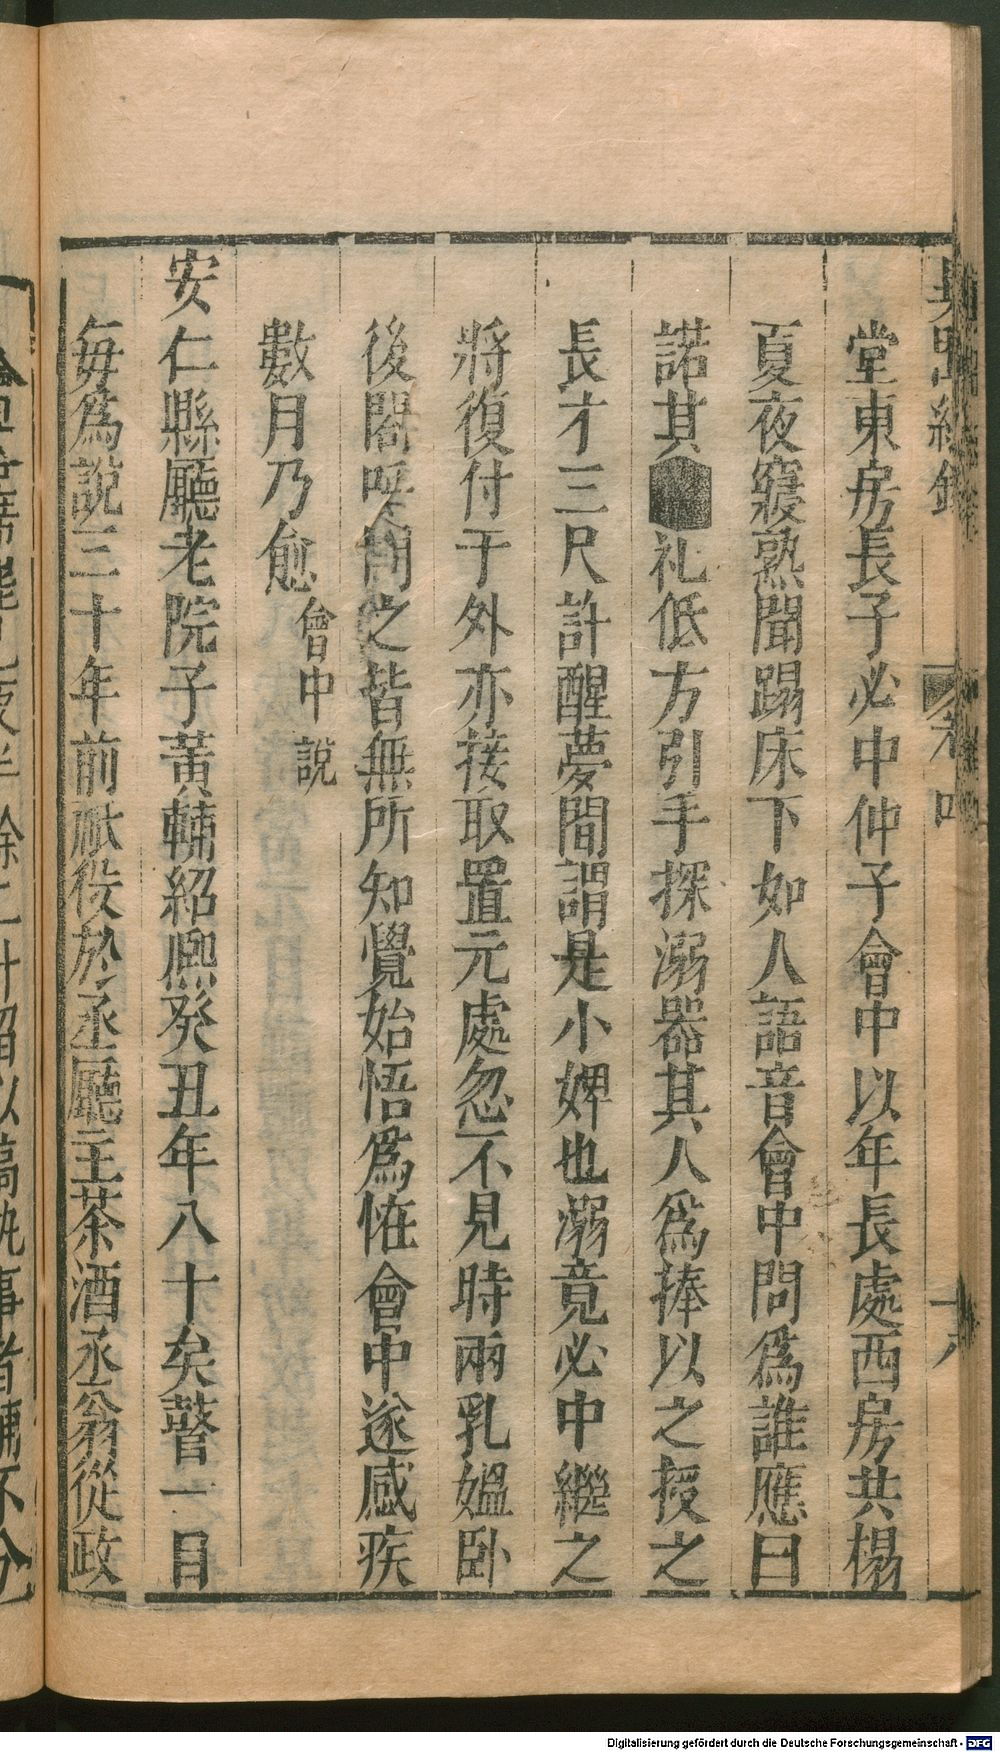 堂東房長子必中仲子會中以年長處西房共榻
夏夜寢熟聞踢床下如人語音會中問爲誰應曰
諾其礼低方引手探溺器其人爲捧以之授之
長才三尺許醒夢間謂是小婢也溺竟必中繼之
將復付于外亦接取置元處忽不見時兩乳媼卧
後閣呼問之皆無所知覺始悟爲恠會中遂感疾
數月乃愈會中說
安仁縣廳老院子黃輔紹熙癸丑年八十矣瞽一目
每爲說三十年前祗役於丞廳主茶酒丞翁從政
Digitalisierung gefördert durch die Deutsche Forschungsgemeinschaft - DFG